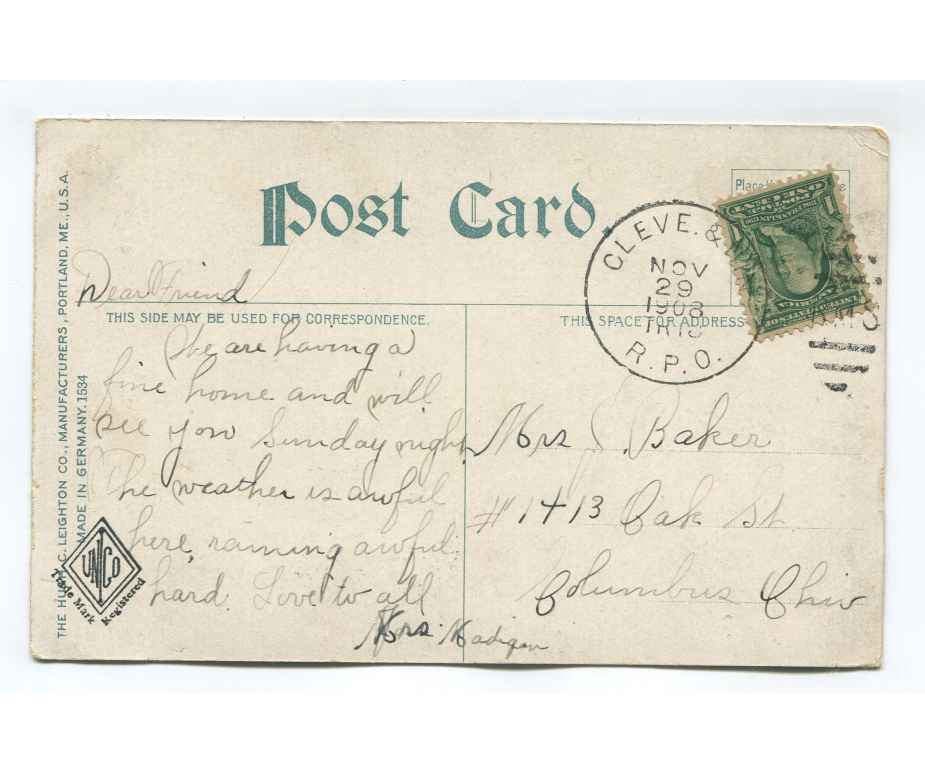 Post Card
Place
CLEVE. &
NOV
29
1908
TR 16
R.P.O.
ONE CENT
UNITED STATES OF AMERICA
Dear Friend
THIS SIDE MAY BE USED FOR CORRESPONDENCE.
THIS SPACE FOR ADDRESS
We are having a
fine home and will
see you Sunday night
The weather is awful
here, raining awful
hard. Love to all
Mrs. Madigan
Mrs J Baker
#1413 Oak St.
Columbus Ohio
THE HUGH C. LEIGHTON CO., MANUFACTURERS, PORTLAND, ME., U.S.A.
MADE IN GERMANY. 1534
UNCo
Trade Mark Registered